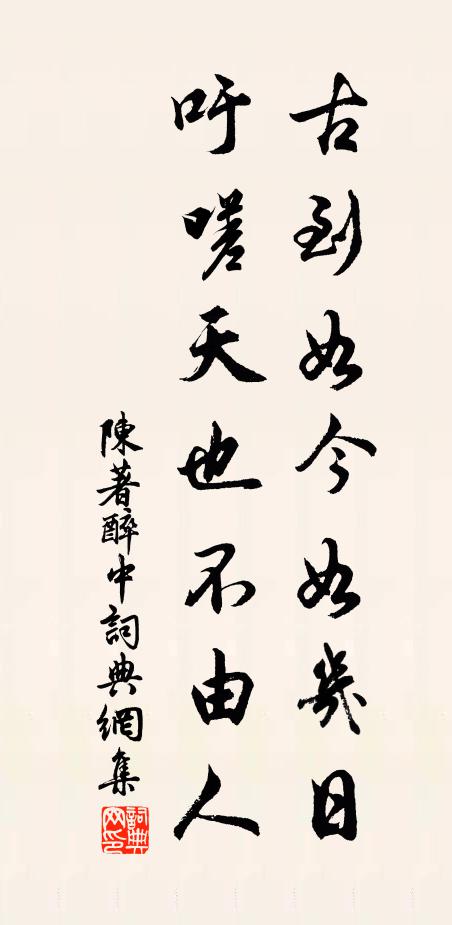 古到如今如幾日
吁嗟天也不由人
陳著醉中詞典網集
詞典網印